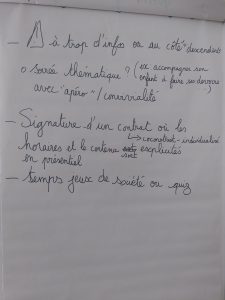 - ⚠ à trop d'infos ou au côté "descendants"
o soirée thématique ? (ex accompagner son
enfant à faire ses devoirs
avec "apéro"/convivialité
- Signature d'un contrat où les
↳ cocontrat - individualisé
horaires et le contenu sont explicités
en présentiel
- temps jeux de société ou quiz